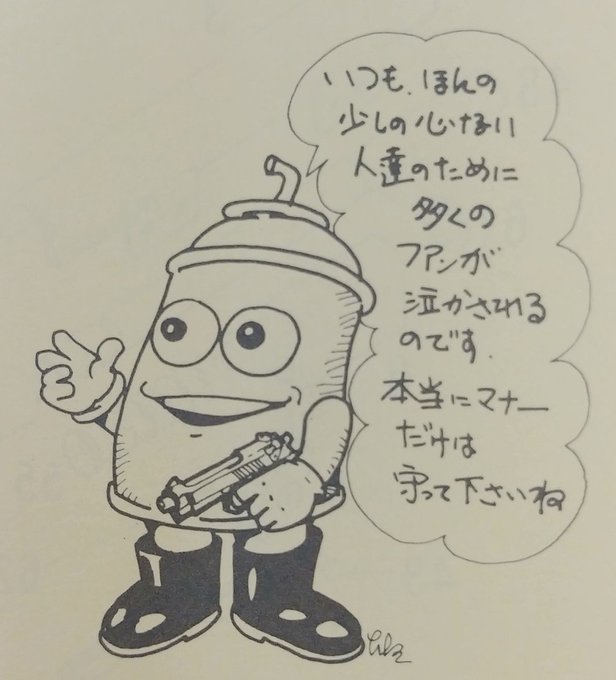 いつも、ほんの
少しの心ない
人達のために
多くの
ファンが
泣かされる
のです.
本当にマナー
だけは
守って下さいね